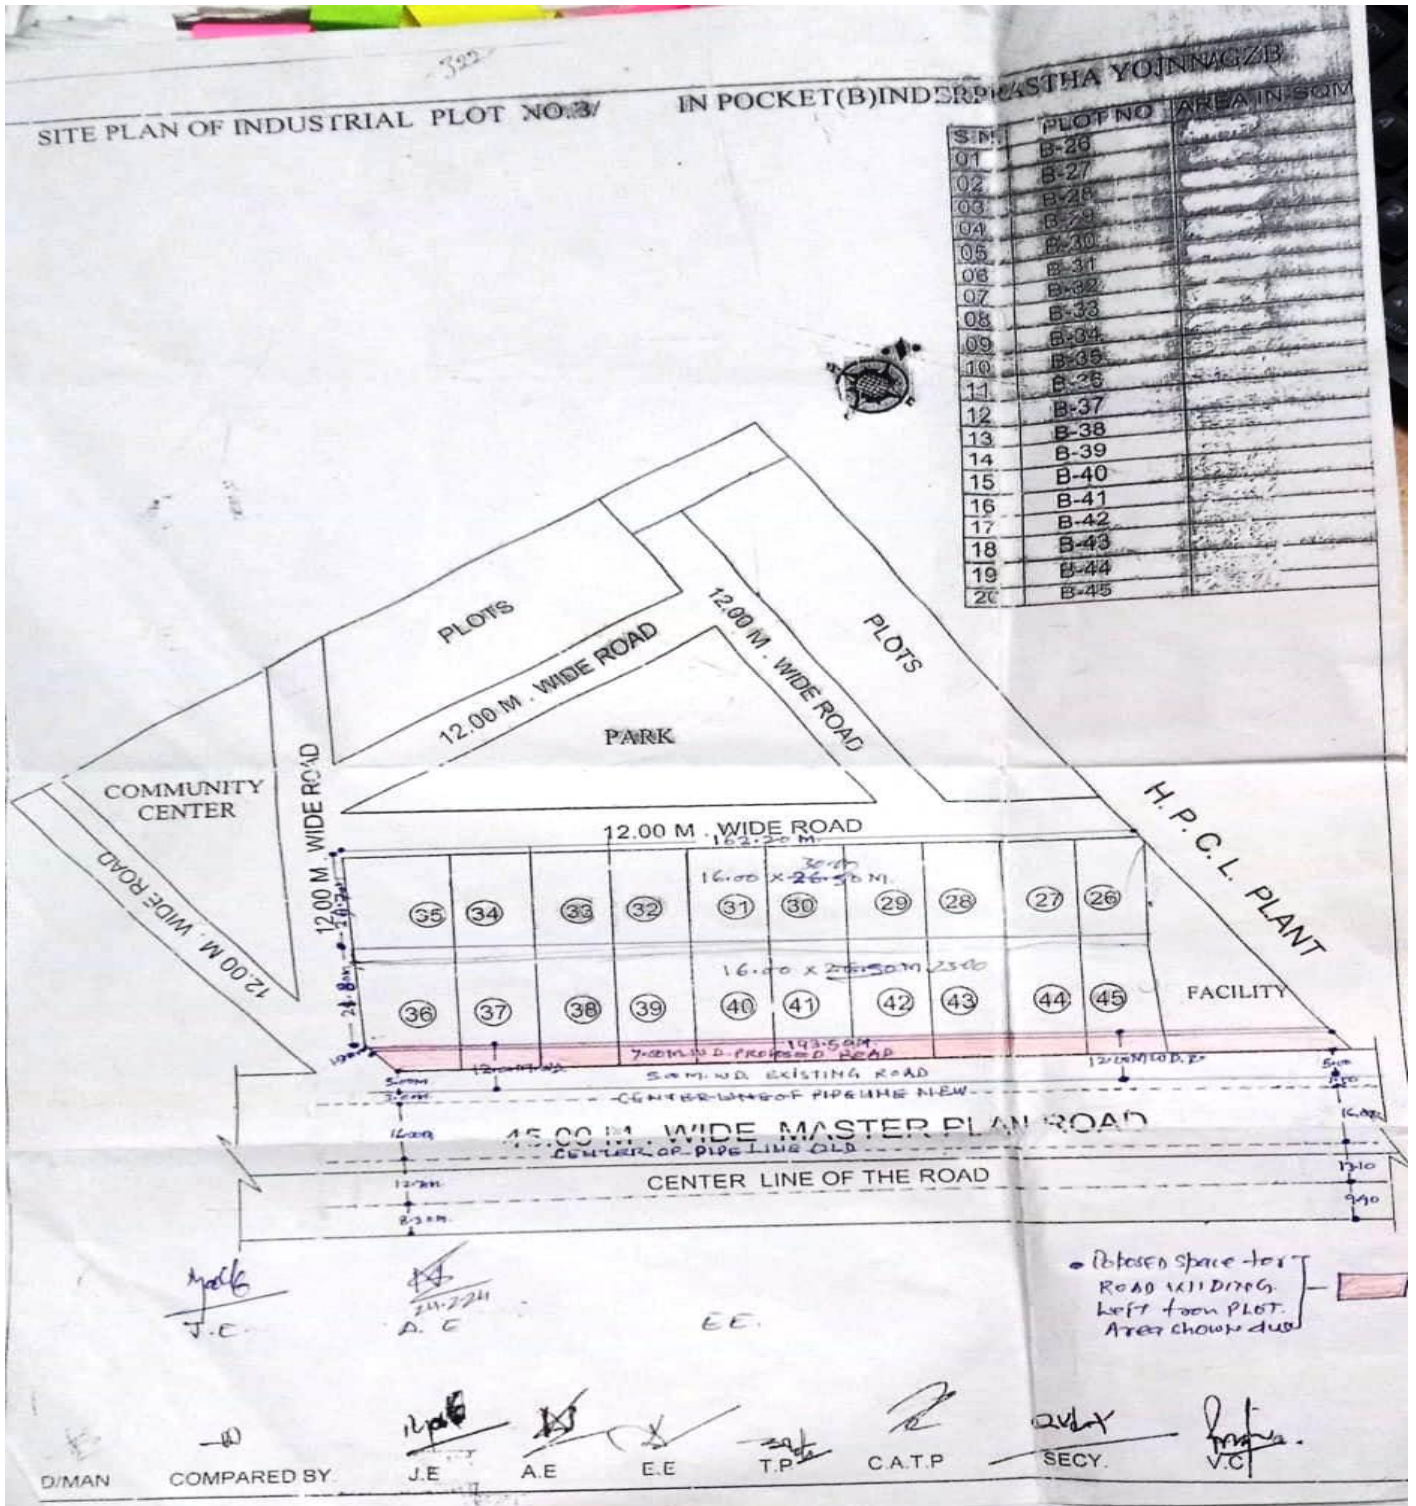 322
SITE PLAN OF INDUSTRIAL PLOT NO.3/ IN POCKET(B)INDERPRASTHA YOJNNAGZB
S.N. PLOT NO AREA IN SQM
01 B-26
02 B-27
03 B-28
04 B-29
05 B-30
06 B-31
07 B-32
08 B-33
09 B-34
10 B-35
11 B-36
12 B-37
13 B-38
14 B-39
15 B-40
16 B-41
17 B-42
18 B-43
19 B-44
20 B-45
PLOTS
12.00 M . WIDE ROAD
12.00 M . WIDE ROAD
PLOTS
PARK
COMMUNITY
CENTER
12.00 M . WIDE ROAD
12.00 M . WIDE ROAD
12.00 M . WIDE ROAD
162.20 M.
H. P. C. L. PLANT
30.00
16.00 x 26.50 M.
35 34 33 32 31 30 29 28 27 26
16.00 x 26.50 M 23.00
36 37 38 39 40 41 42 43 44 45
FACILITY
193.50M.
7.00M.WD. PROPOSED ROAD
5.0 M. WD. EXISTING ROAD
5.00M.
CENTER LINE OF PIPELINE NEW
16.00
45.00 M . WIDE MASTER PLAN ROAD
CENTER OF PIPE LINE OLD
CENTER LINE OF THE ROAD
13.10
9.90
8.30M.
Poposed space for
ROAD WIDING.
Left from PLOT.
Area shown dus
J.E.
24.2.24
A. E
E E.
D/MAN COMPARED BY. J.E A.E E.E T.P C.A.T.P SECY. V.C